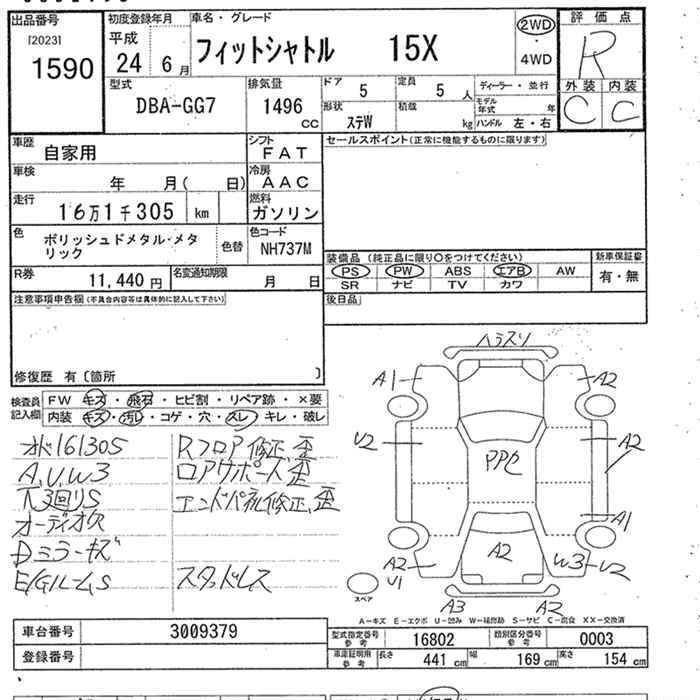 出品番号
[2023]
1590
初度登録年月
平成
24 6月
車名・グレード
フィットシャトル 15X
2WD
・
4WD
評価点
R
外装 内装
C C
型式
DBA-GG7
排気量
1496
CC
ドア
5
定員
5人
形状
ステW
積載
kg
ディーラー・並行
モデル年式 年
ハンドル 左・右
車歴
自家用
シフト
FAT
車検
年 月( 日)
冷房
AAC
走行
16万1千305 km
燃料
ガソリン
色
ポリッシュドメタル・メタ
リック
色替
色コード
NH737M
R券
11,440円
名変通知期限
月 日
セールスポイント(正常に機能するものに限ります)
装備品(純正品に限り〇をつけてください)
PS PW ABS エアB AW
SR ナビ TV カワ
新車保証書
有・無
後日品
注意事項申告欄(不具合内容等は具体的に記入して下さい)
修復歴 有〔箇所 〕
検査員
記入欄
FW キズ・飛石・ヒビ割・リペア跡・×要
内装 キズ・汚レ・コゲ・穴・スレ・キレ・破レ
161305
A,U,W3
下回りS
オーディオ欠
Dミラーキズ
E/GルームS
Rフロア修正、歪
ロアサポート歪
エンドパネル修正、歪
スタッドレス
A1
A2
U2
A2
A1
A2
U1
A2
W3
U2
A3
A2
スペア
A-キズ E-エクボ U-凹み W-補修跡 S-サビ C-腐食 XX-交換済
車台番号
3009379
登録番号
型式指定番号
参考
16802
類別区分番号
参考
0003
車庫証明用
参考
長さ 441cm
幅 169cm
高さ 154cm